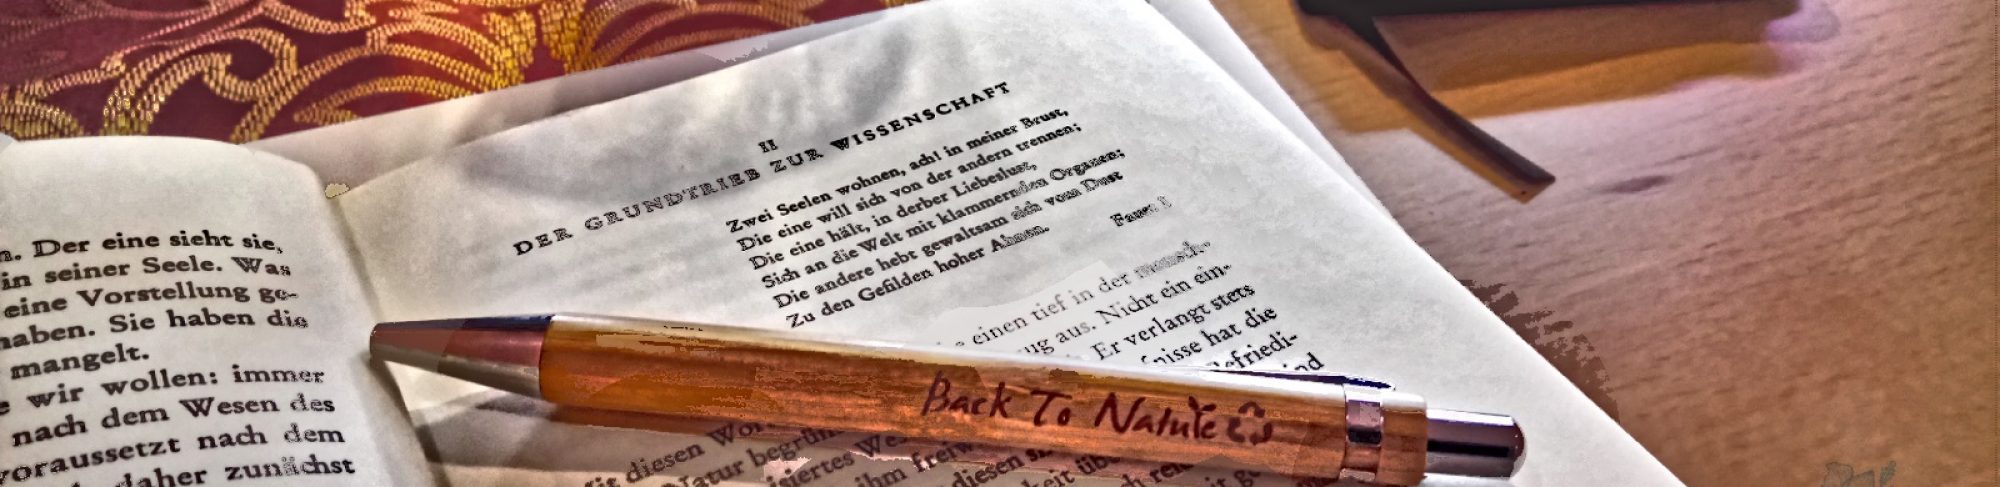 n. Der eine sieht sie,
in seiner Seele. Was
eine Vorstellung ge-
haben. Sie haben die
mangelt.
wir wollen: immer
nach dem Wesen des
voraussetzt nach dem
daher zunächst
II
DER GRUNDTRIEB ZUR WISSENSCHAFT
Zwei Seelen wohnen, ach! in meiner Brust,
Die eine will sich von der andern trennen;
Die eine hält, in derber Liebeslust,
Sich an die Welt mit klammernden Organen;
Die andere hebt gewaltsam sich vom Dust
Zu den Gefilden hoher Ahnen.
Faust I
einen tief in der mensch-
aus. Nicht ein ein-
Er verlangt stets
hat die
Befriedi-
diesen
Natur
ihm
diesen
Back To Nature